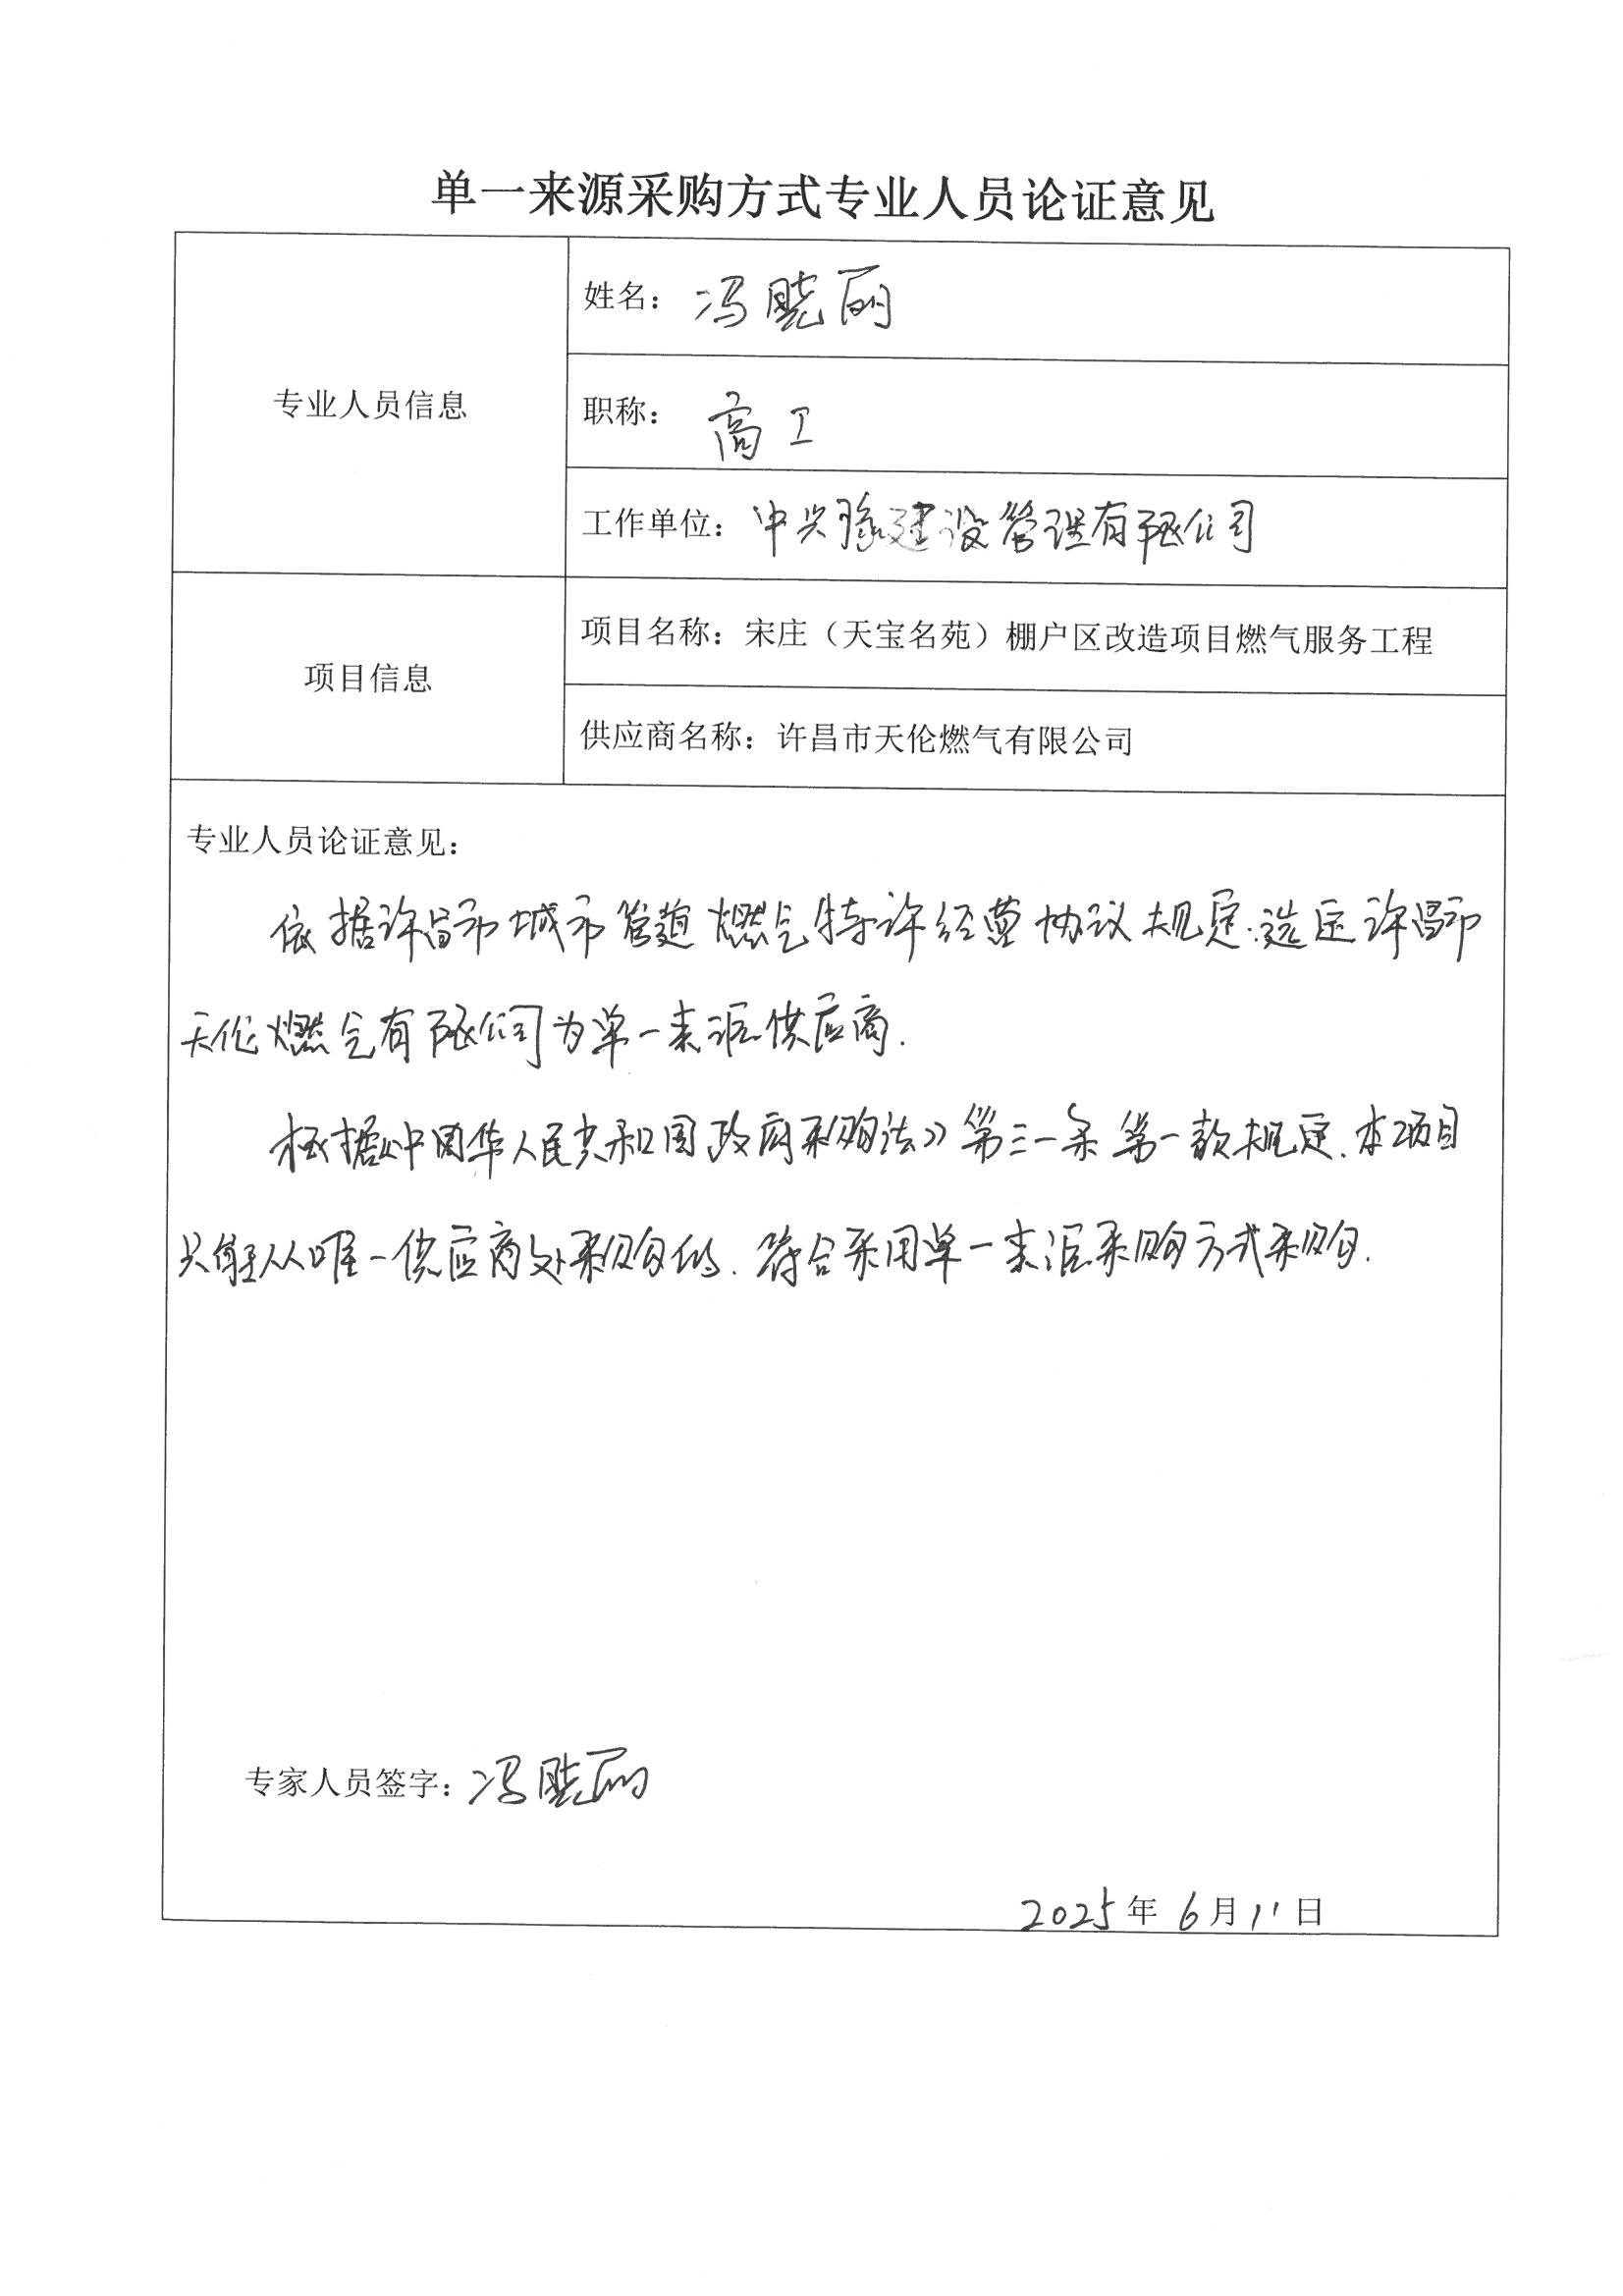 单一来源采购方式专业人员论证意见
专业人员信息
姓名：冯晓丽
职称：高工
工作单位：中兴豫建设管理有限公司
项目信息
项目名称：宋庄（天宝名苑）棚户区改造项目燃气服务工程
供应商名称：许昌市天伦燃气有限公司
专业人员论证意见：
依据许昌市城市管道燃气特许经营协议规定.选定许昌市
天伦燃气有限公司为单一来源供应商.
根据《中国华人民共和国政府采购法》第三一条第一款规定.本项目
只能从唯一供应商处采购的.符合采用单一来源采购方式采购.
专家人员签字：冯晓丽
2025年6月11日